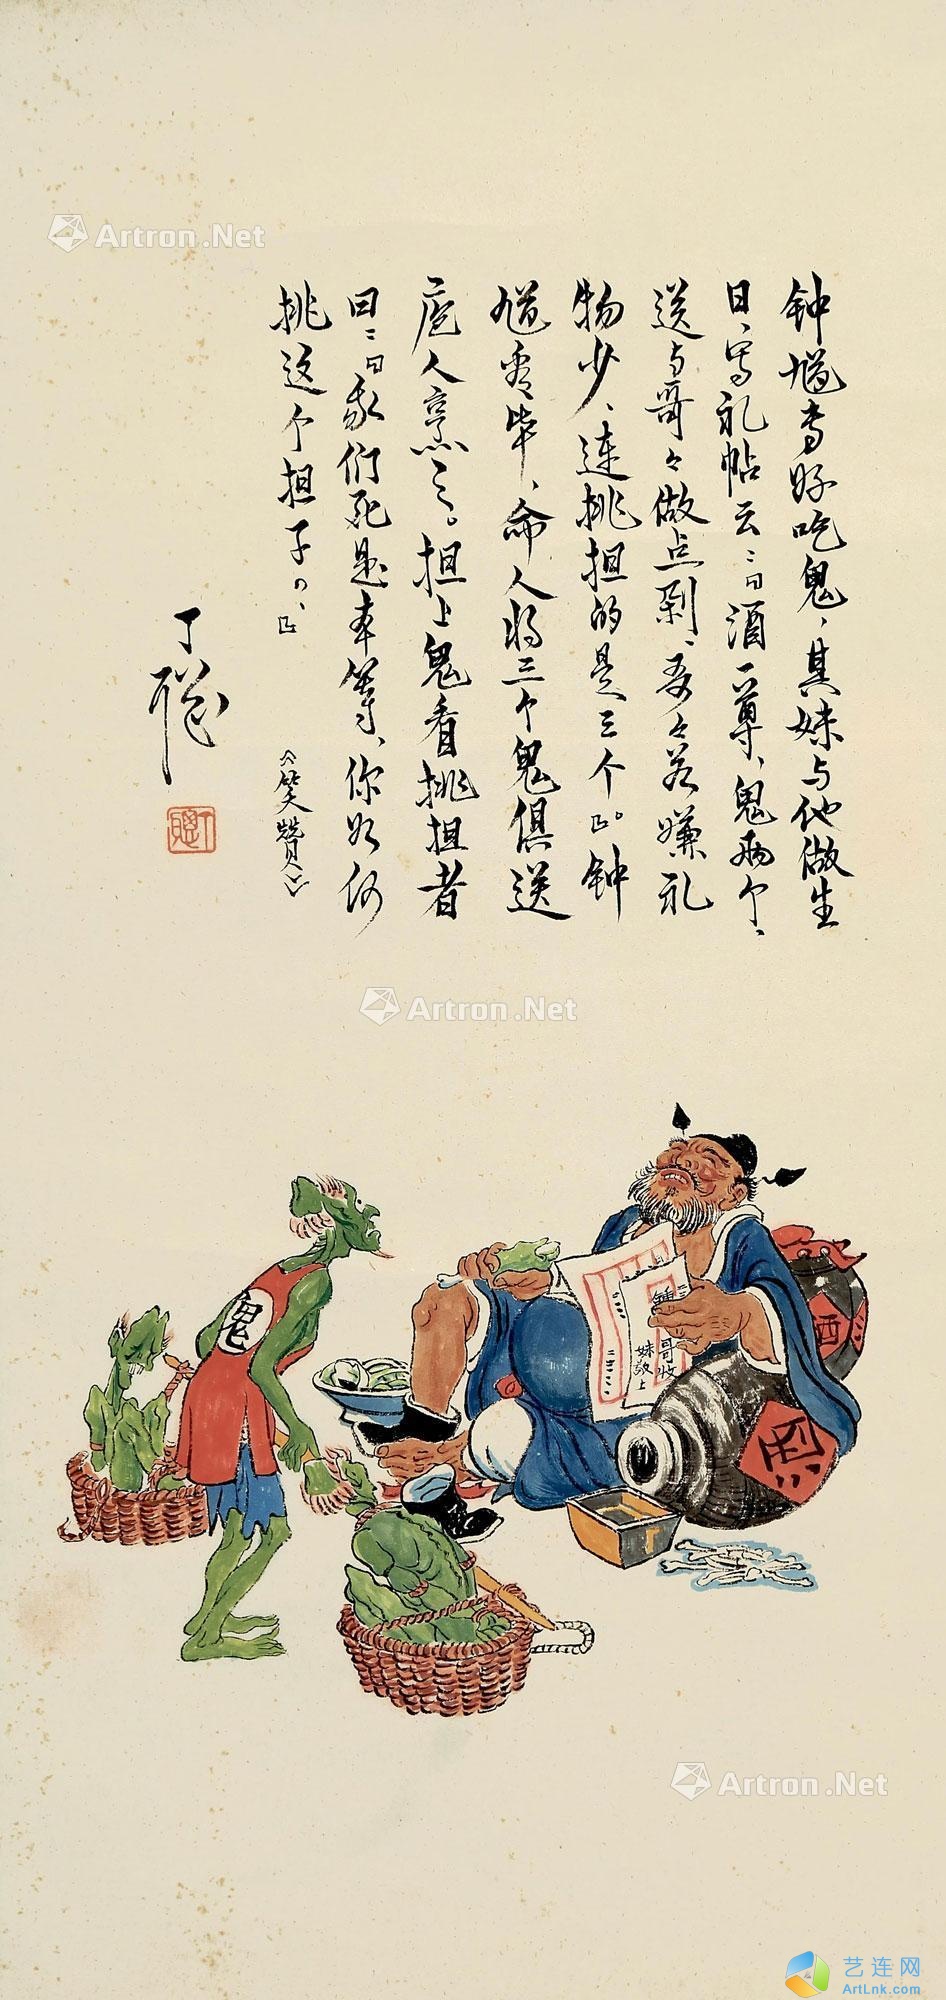 钟馗专好吃鬼，其妹与他做生
日，写礼帖云：“酒一尊，鬼两个，
送与哥々做点剁，哥々若嫌礼
物少，连挑担的是三个”。钟
馗看毕，命人将三个鬼俱送
庖人烹之。担上鬼看挑担者
曰：“我们死是本等，你如何
挑这个担子？”
《笑赞》
丁聪
丁聪
鬼
哥收
妹敬上
酒
Artron.Net
Artron.Net
Artron.Net
艺连网
ArtLnk.com